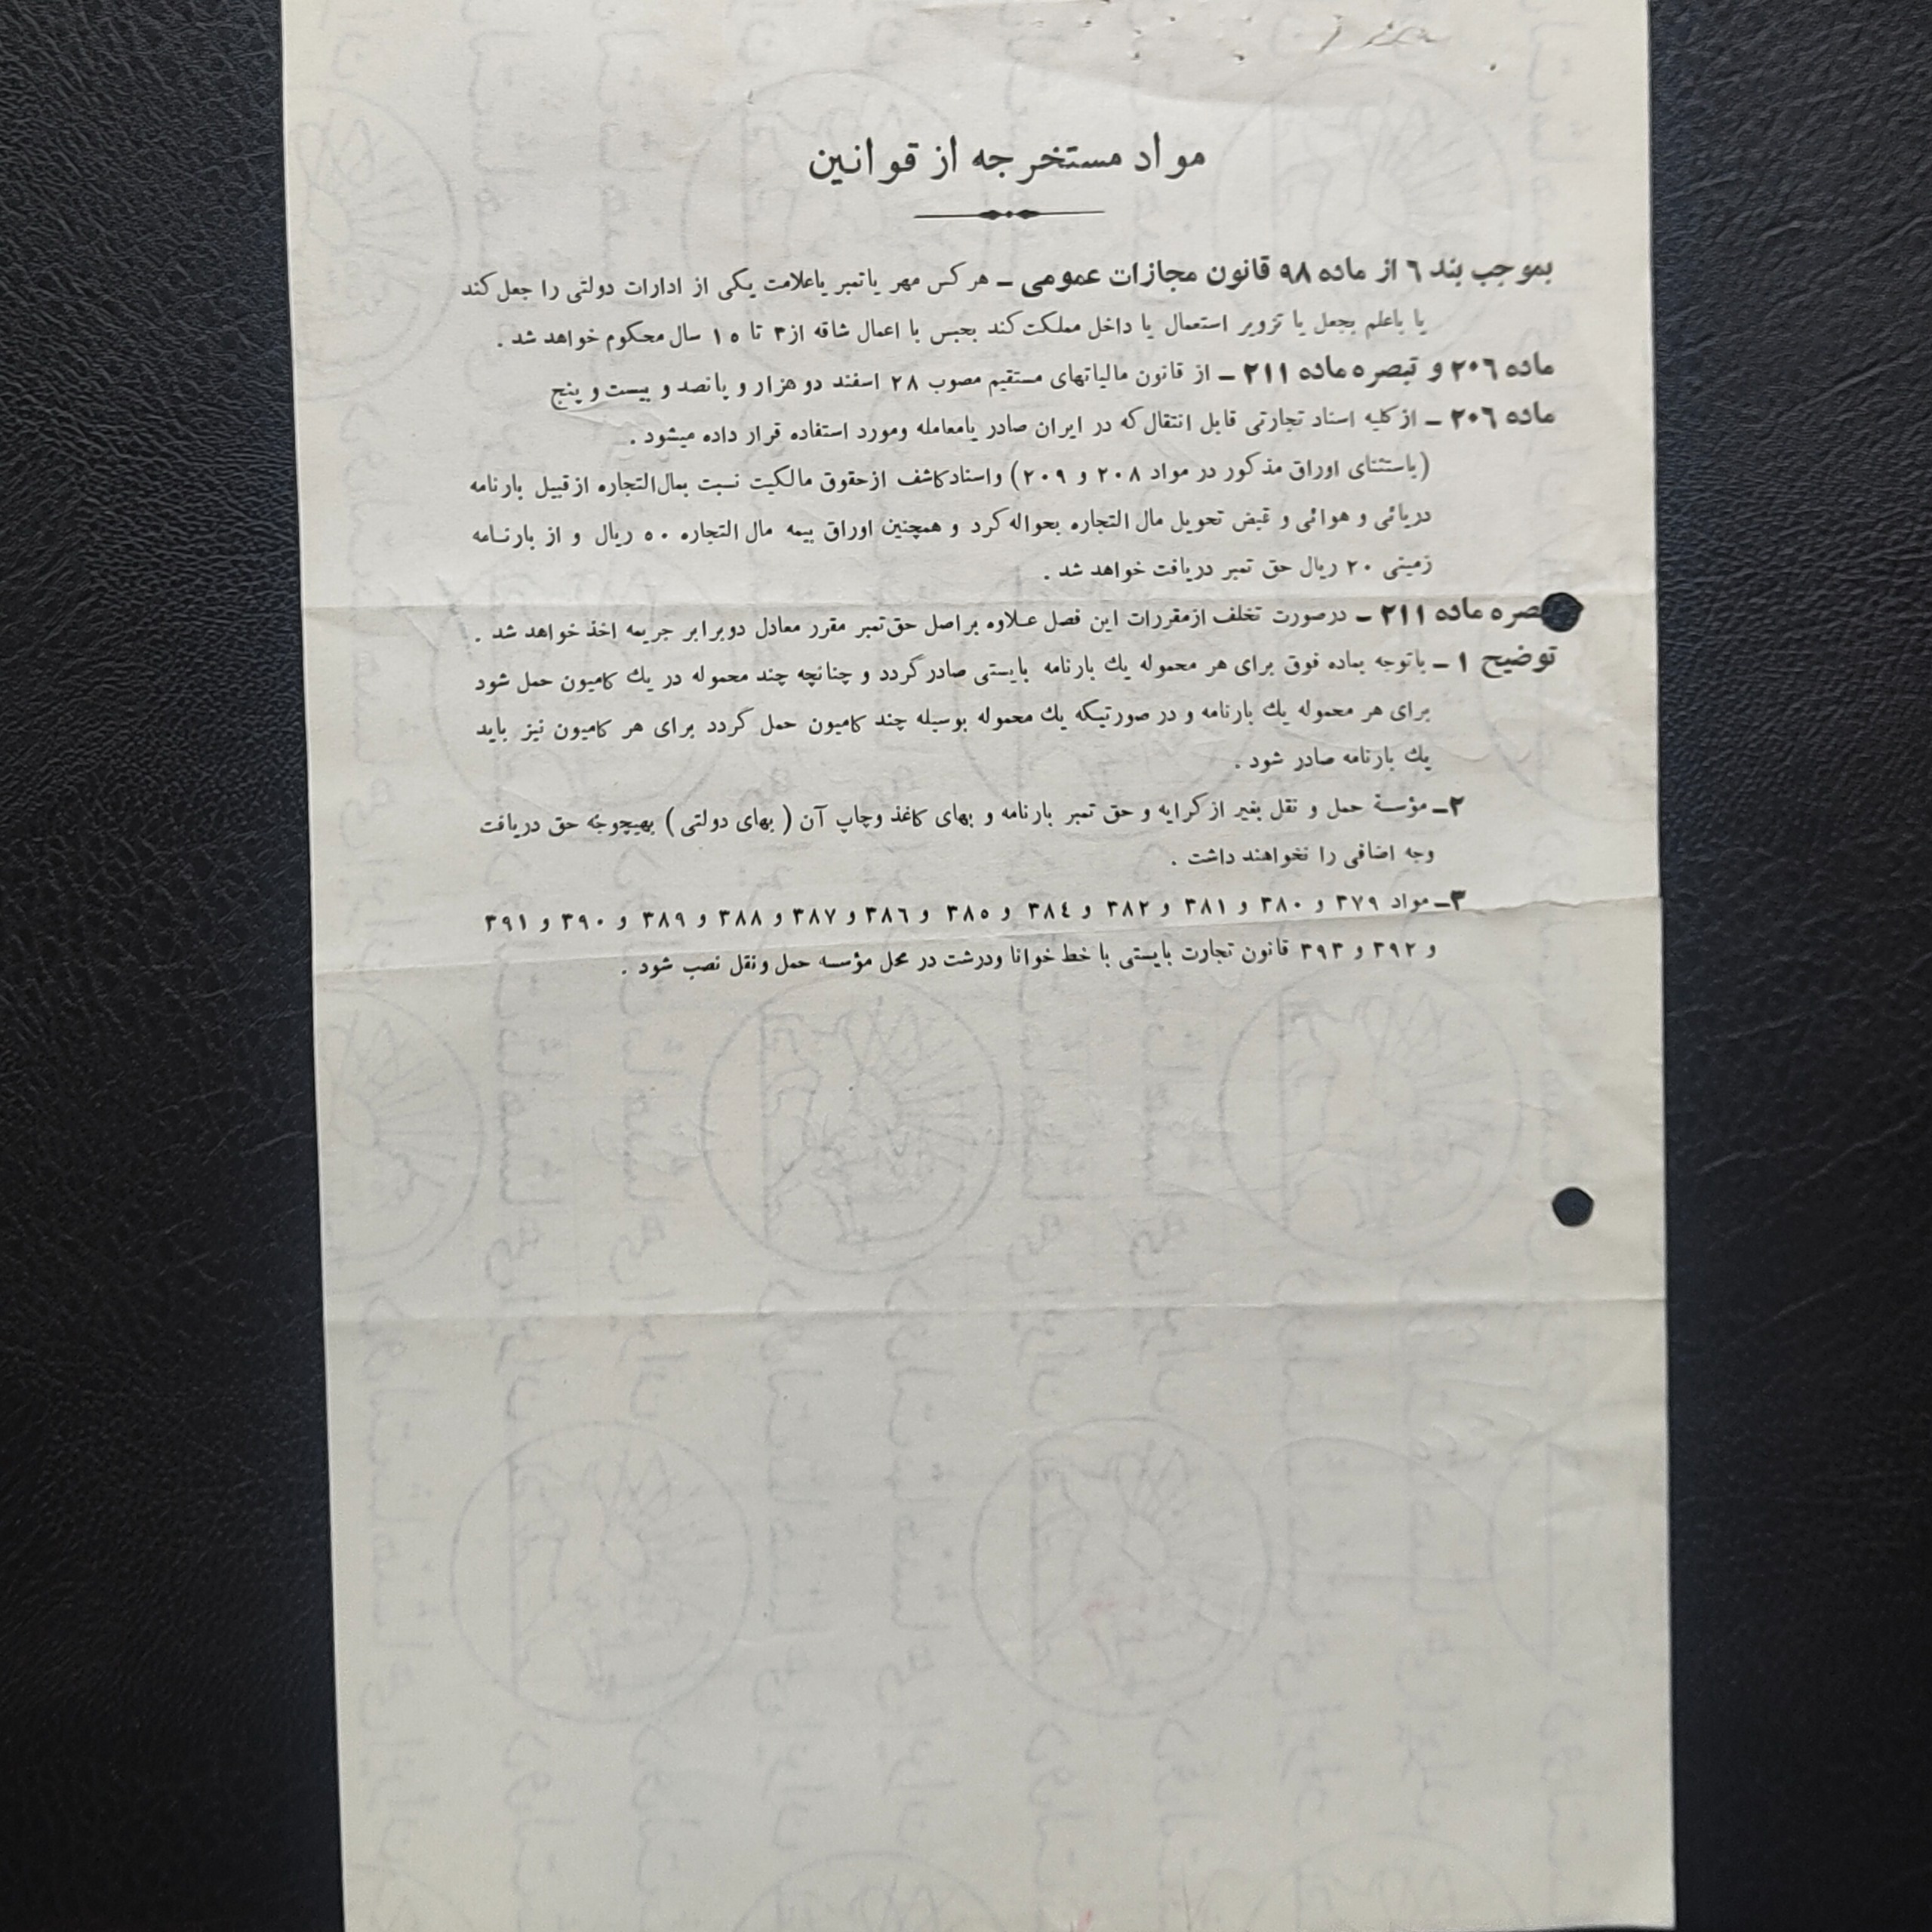 مواد مستخرجه از قوانین
بموجب بند ٦ از ماده ۹۸ قانون مجازات عمومی ـ هر کس مهر یا تمبر یا علامت یکی از ادارات دولتی را جعل کند
یا با علم بجعل یا تزویر استعمال یا داخل مملکت کند بحبس با اعمال شاقه از ۳ تا ۱۵ سال محکوم خواهد شد .
ماده ۲۰٦ و تبصره ماده ۲۱۱ ـ از قانون مالیاتهای مستقیم مصوب ۲۸ اسفند دو هزار و پانصد و بیست و پنج
ماده ۲۰٦ ـ از کلیه اسناد تجارتی قابل انتقال که در ایران صادر یا معامله و مورد استفاده قرار داده میشود .
(باستثنای اوراق مذکور در مواد ۲۰۸ و ۲۰۹) و اسناد کاشف از حقوق مالکیت نسبت بمال‌التجاره از قبیل بارنامه
دریائی و هوائی و قبض تحویل مال التجاره بحواله کرد و همچنین اوراق بیمه مال التجاره ۵۰ ریال و از بارنامه
زمینی ۲۰ ریال حق تمبر دریافت خواهد شد .
صره ماده ۲۱۱ ـ در صورت تخلف از مقررات این فصل علاوه بر اصل حق تمبر مقرر معادل دو برابر جریمه اخذ خواهد شد .
توضیح ۱ ـ با توجه بماده فوق برای هر محموله يك بارنامه بایستی صادر گردد و چنانچه چند محموله در يك کامیون حمل شود
برای هر محموله يك بارنامه و در صورتیکه يك محموله بوسیله چند کامیون حمل گردد برای هر کامیون نیز باید
يك بارنامه صادر شود .
۲ـ مؤسسة حمل و نقل بغیر از کرایه و حق تمبر بارنامه و بهای کاغذ و چاپ آن ( بهای دولتی ) بهیچوجه حق دریافت
وجه اضافی را نخواهند داشت .
۳ـ مواد ۳۷۹ و ۳۸۰ و ۳۸۱ و ۳۸۲ و ۳۸٤ و ۳۸۵ و ۳۸٦ و ۳۸۷ و ۳۸۸ و ۳۸۹ و ۳۹۰ و ۳۹۱
و ۳۹۲ و ۳۹۳ قانون تجارت بایستی با خط خوانا و درشت در محل مؤسسه حمل و نقل نصب شود .